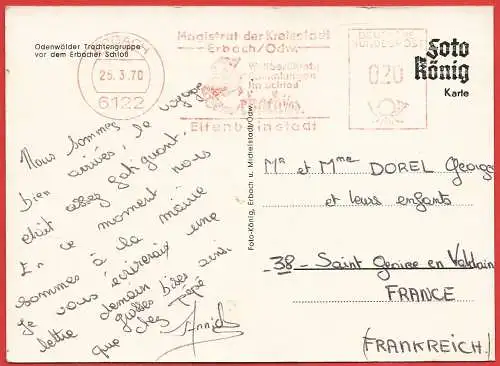 Odenwälder Trachtengruppe
vor dem Erbacher Schloß
ERBACH
25.3.70
6122
Magistrat der Kreisstadt
Erbach/Odw.
im Schloß
Elfenbeinstadt
DEUTSCHE
BUNDESPOST
020
Foto
König
Karte
Nous sommes
bien arrivés, le voyage
était assez fatiguant.
En ce moment nous
sommes à la mairie
je vous écrirais une
lettre demain bises ainsi
que chez Pépé
Annick
Foto-König, Erbach u. Michelstadt/Odw.
Mr et Mme DOREL Georges
et leurs enfants
-38- Saint Geoire en Valdaine
FRANCE
(FRANKREICH!)